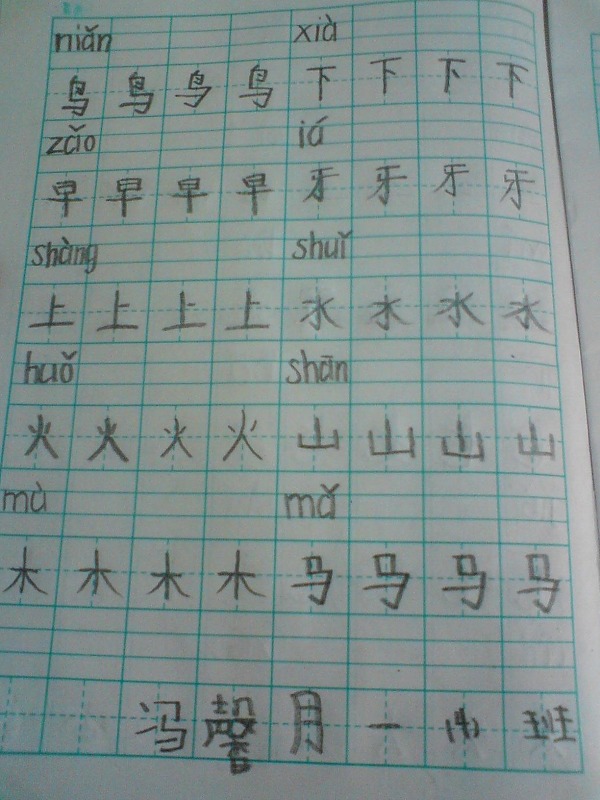 niǎn xià
鸟 鸟 鸟 鸟 下 下 下 下
zǎo iá
早 早 早 早 牙 牙 牙 牙
shàng shuǐ
上 上 上 上 水 水 水 水
huǒ shān
火 火 火 火 山 山 山 山
mù mǎ
木 木 木 木 马 马 马 马
冯 馨 月 一 (4) 班